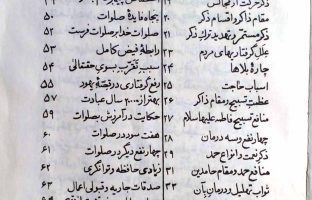 ذکر حرکت از مجالس ۱۹
مقام ذاکر و اقسام ذکر ۲۰
ذکر مستمر و تهدید ترک ذکر ۲۱
علل گرفتاریهای مردم ۲۳
چارۀ بلاها ۲۴
اسباب حاجت ۲۵
عظمت تسبیح و مقام ذاکر ۲۶
منافع تسبیح فاطمه علیهاالسلام ۲۷
چهار نفر و سه درمان ۲۸
ذکر نعمت و انواع حمد ۲۹
منافع حمد و مقام حامدین ۳۱
ثواب تهلیل و درمان آن ۳۳
پنجاه فایدۀ صلوات ۵۰
صلوات خدا بر صلوات فرست ۵۲
رابطۀ فیض کامل ۵۳
سبب تقرب بسوی حقتعالی ۵۴
رفع گرفتاری در قیصۀ یهود ۵۵
بهتر از ۲۰۰۰ سال عبادت ۵۷
حکایت در آمرزش بصلوات ۵۹
هفت سود در صلوات ۶۰
چهار نفع دیگر در صلوات ۶۱
زیادی حافظه و توانگری ۶۲
صدقات جاریه و قبولی اعمال ۶۳